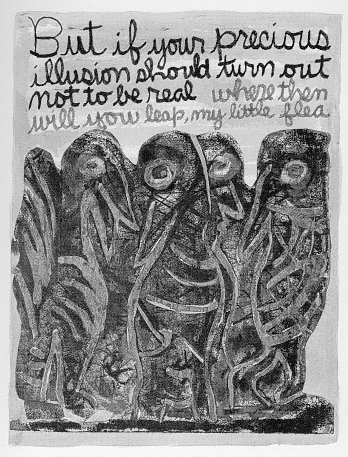 But if your precious
illusion should turn out
not to be real where then
will you leap, my little flea